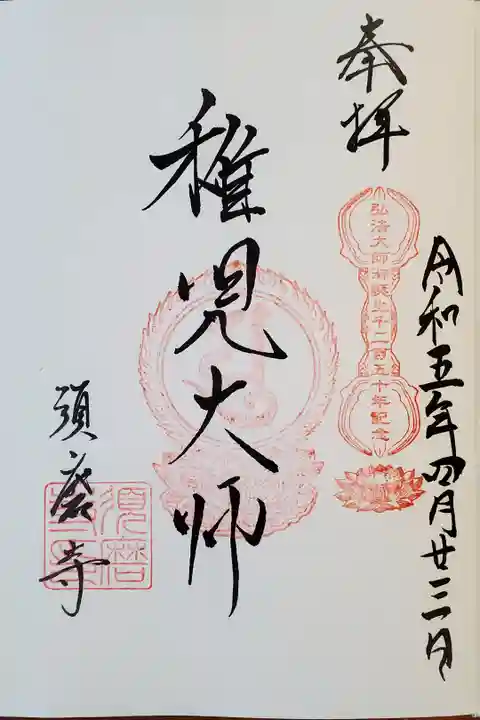 奉拝
弘法大師御誕生千二百五十年記念
令和五年四月廿三日
稚児大師
須磨寺
須磨